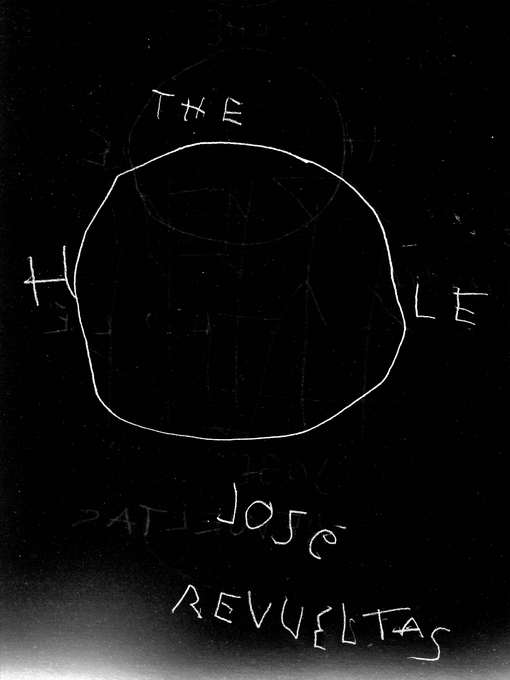 THE
HOLE
JOSÉ
REVUELTAS